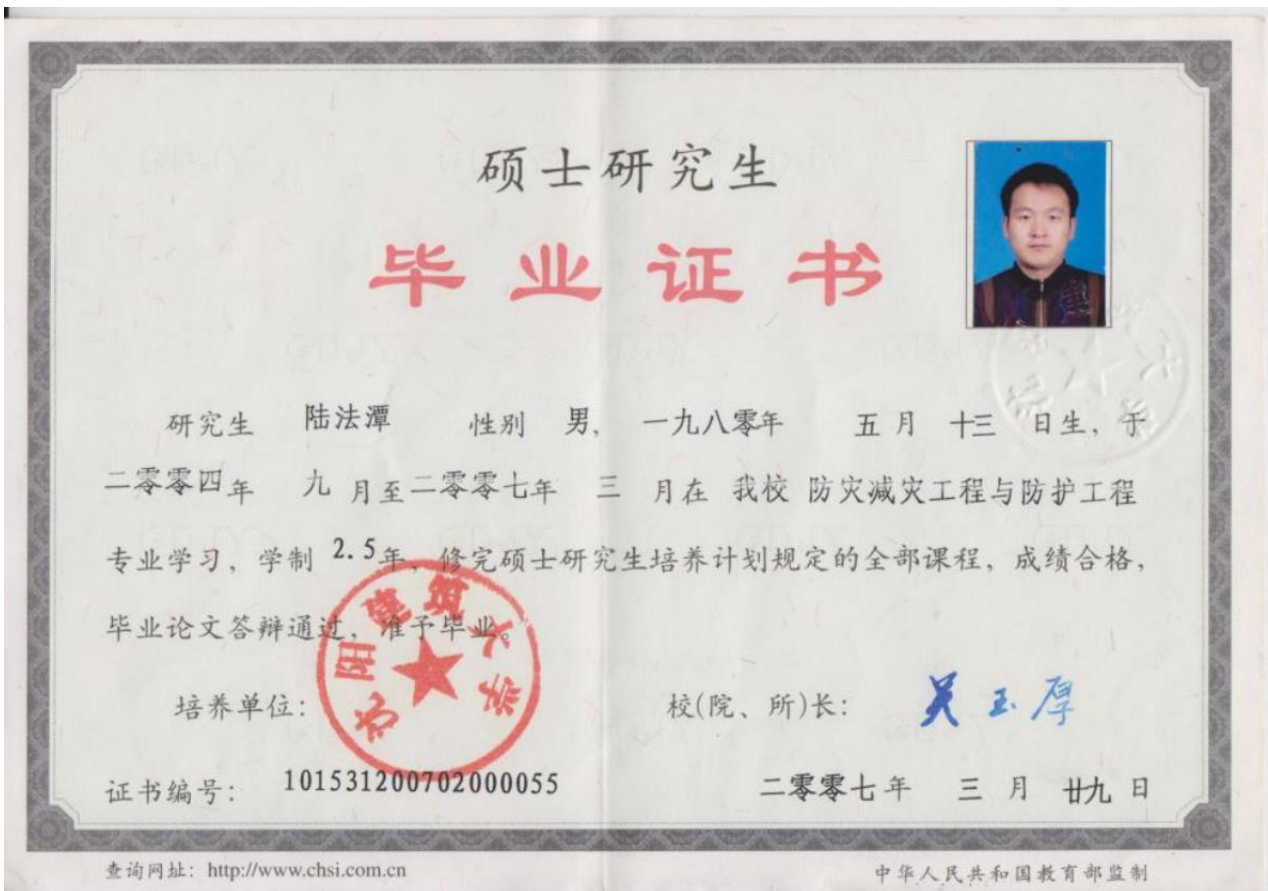 硕士研究生
毕业证书
研究生 陆法潭 性别 男, 一九八零年 五月 十三 日生, 于
二零零四年 九 月至二零零七年 三 月在 我校 防灾减灾工程与防护工程
专业学习, 学制 2.5年, 修完硕士研究生培养计划规定的全部课程, 成绩合格,
毕业论文答辩通过, 准予毕业。
沈阳建筑大学
培养单位: 校(院、所)长: 吴玉厚
证书编号: 101531200702000055 二零零七年 三 月 廿九 日
查询网址: http://www.chsi.com.cn 中华人民共和国教育部监制